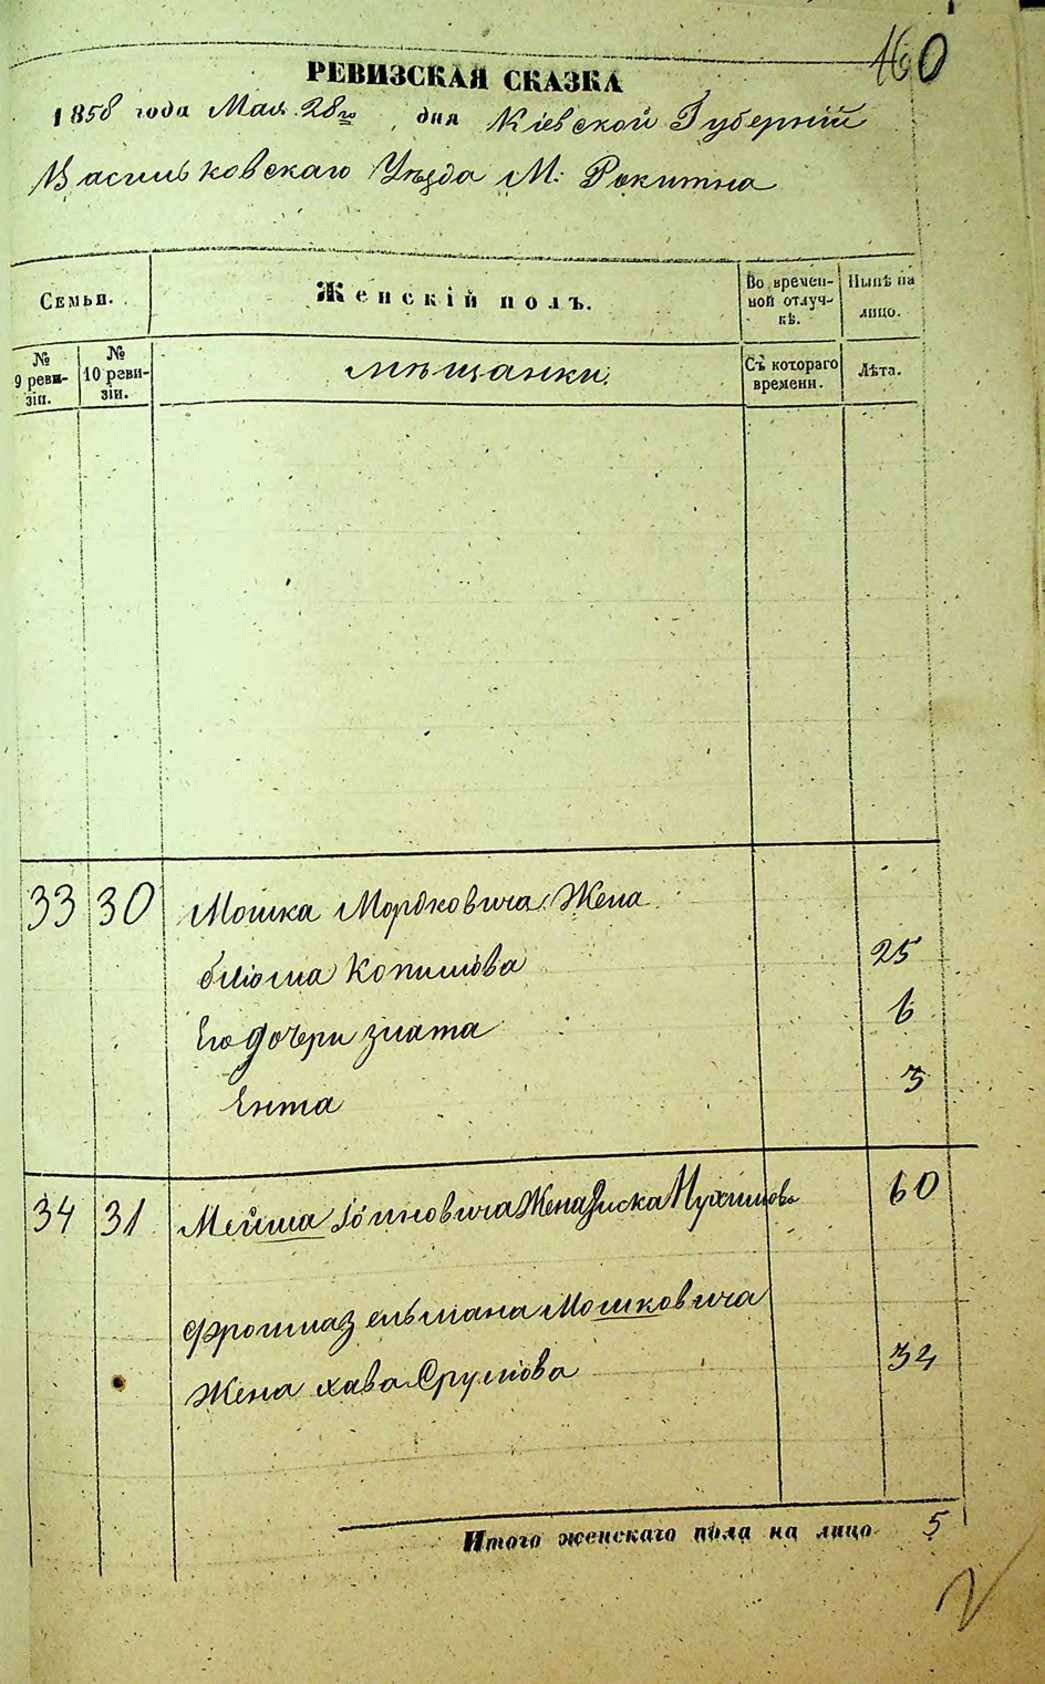 160
РЕВИЗСКАЯ СКАЗКА
1858 года Мая 28го дня Кіевской Губерніи
Васильковскаго Уѣзда М: Рокитна
Семьи.
Женскій полъ.
Во времен-
ной отлуч-
кѣ.
Нынѣ на
лицо.
№
9 реви-
зіи.
№
10 реви-
зіи.
мѣщанки.
Съ котораго
времени.
Лѣта.
33 30 Мошка Мордковича Жена
Копилова 25
Его дочери злата 6
Ента 3
34 31 Жена 60
Мошковича
Жена хава Срулиова 34
Итого женскаго пола на лицо 5